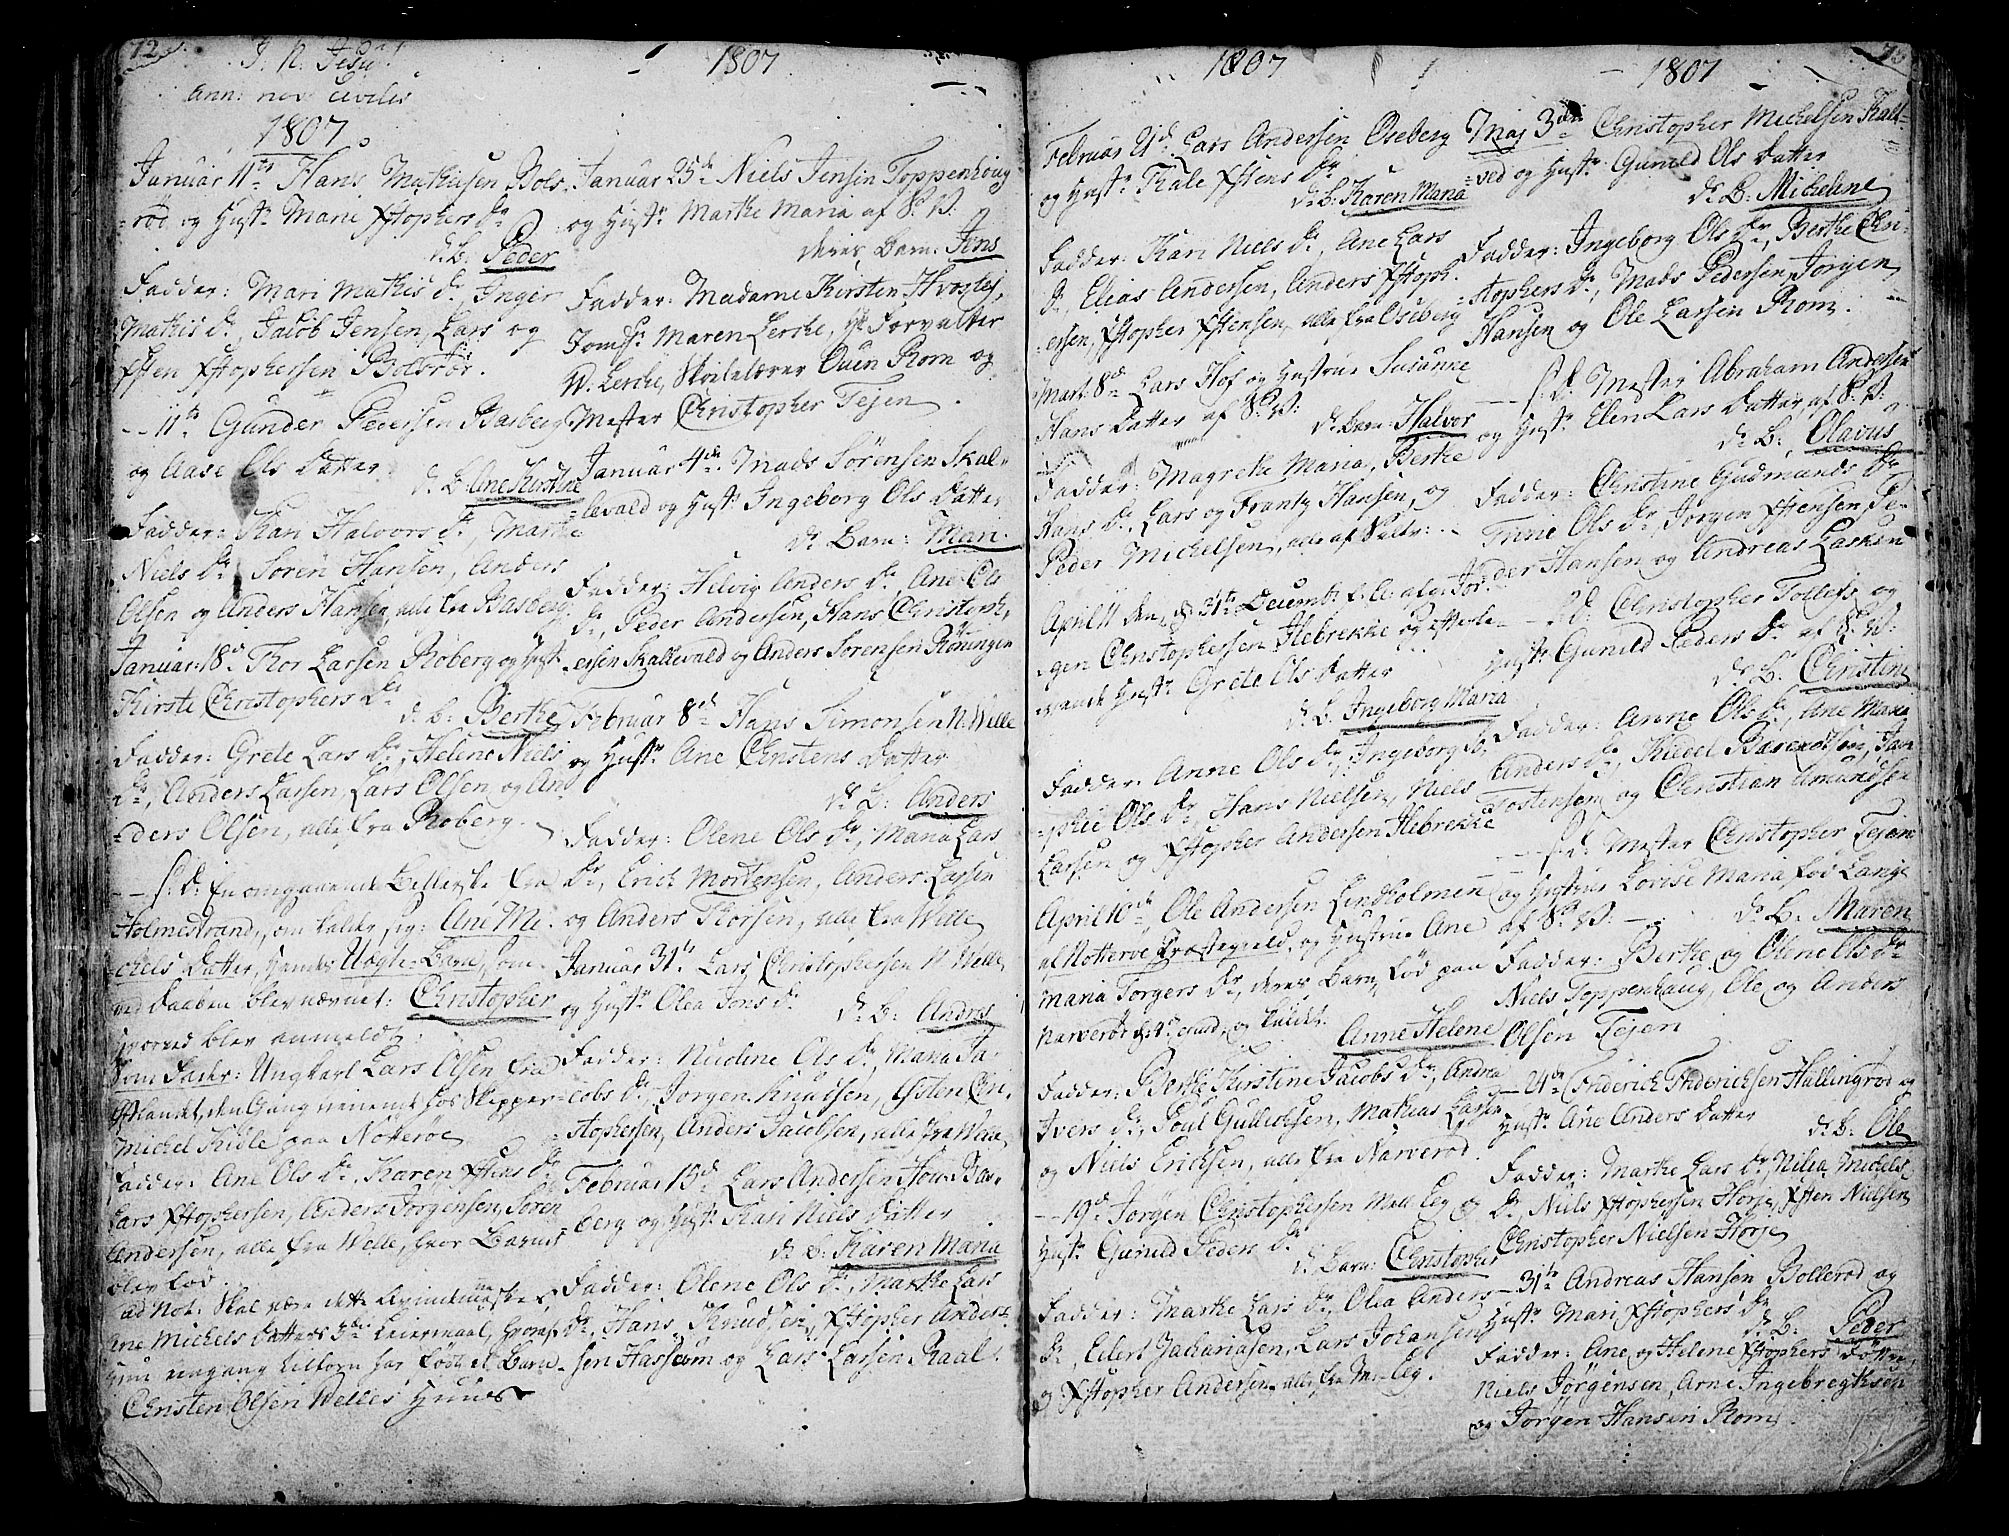 72
J. N. Jesu
Ann: nov civilis
1807
Januar 11te Hans Mathisen Bols
=rød og Hustr Marie Xstophers Dr
ds B: Peder
Fadder: Mari Mathis Dr, Inger
Mathis Dr, Jacob Jensen, Lars og
Xsten Xstophersen Bolsrør.
— 11te Gunder Pedersen Basberg
og Aase Ols Datter
ds B: Ane Kirstine
Fadder: Kari Halvors Dr, Marthe
Niels Dr Sören Hansen, Anders
Olsen og Anders Hansen, alle fra Basberg
Januar: 18de Thor Larsen Roberg og Hustr
Kirste Christophers Dr
ds B: Berthe
Fadder: Grete Lars Dr, Helene Niels
Dr, Anders Larsen, Lars Olsen, og An
=ders Olsen, alle fra Roberg.
— s: D: En omgaaende Betlerske fra
Holmestrand, som kaldte sig: Ane Mi-
=chels Datter, hendes Uægte-Barn, som
ved Daaben blev nævnet: Christopher
hvorved blev anmeldt
Som Fader: Ungkarl Lars Olsen fra
Michel Kiøle paa Nøtterøe
Fadder: Ane Ols Dr, Karen Xstens Dr
Lars Xstophersen, Anders Jörgensen, Sören
Andersen, alle fra Welle, hvor Barnet
blev fød.
ad Not: Skal være dette Qvindemenneskes
Ane Michels Datters 3die Leiermaal, hvoraf
hun engang tilforn har fød et Barn
Christen Olsen Welles Huus
1807
Januar 25de Niels Jensen Toppenhoug
og Hustr Marthe Maria af S: V:
deres Barn: Jens
Fadder: Madame Kirsten Hvoslef,
Jomfr: Maren Lerche, Hr Forvalter
W. Lerche, Skolelærer Ouen Rom og
Mester Christopher Tejen.
Januar 4de Mads Sörensen Skal-
=levald og Hustr Ingeborg Ols Datter
ds Barn: Mari.
Fadder: Helvig Anders Dr, Ane Ols
Dr, Peder Andersen, Hans Christoph-
=ersen Skallevald og Anders Sörensen Röningen
Februar 8de Hans Simonsen N. Wille
og Hustr Ane Christens Datter
ds B: Anders
Fadder: Olene Ols Dr, Maria Lars
Dr, Erich Mortensen, Anders Larsen
og Anders Thorsen, alle fra Wille
Januar 31te Lars Christophersen N. Welle
og Hustr Olea Jons Dr
ds B: Andres
Fadder: Nudine Ols Dr, Maria Ja-
cobs Dr, Jörgen Knudsen, Xsten Chri-
=stophersen, Anders Jacobsen, alle fra Welle
Februar 15de Lars Andersen Hou-Bas-
=berg og Hustr Kari Niels Datter
ds B: Karen Maria
Fadder: Olene Ols Dr, Marthe Lars
Dr, Hans Knudsen, Xstopher Ander-
=sen Hasseum og Lars Larsen Raal.
1807
Februar 21de Lars Andersen Oseberg
og Hustr Thale Xstens Dr
ds B: Karen Maria
Fadder: Kari Niels Dr, Ane Lars
Dr, Elias Andersen, Anders Xstoph-
=ersen, Xstopher Xstensen, alle fra Oseberg
Mart: 8de Lars Hof og Hustrue Susanne
Hans Datter af S: V:
ds Barn: Halvor
Fadder: Magrethe Maria, Berthe
Hans Dr, Lars og Frantz Hansen, og
Peder Michelsen, alle af
April 11 den, d 31te Decemb: f. A. afg: Jör-
=gen Christophersen Ilebrekke og efterle-
=vende Hustr Grete Ols Datter
ds B. Ingeborg Maria
Fadder: Anne Ols Dr, Ingeborg So-
=phie Ols Dr, Hans Nielsen, Niels
Larsen og Xstopher Andersen Ilebrekke
April 10de Ole Andersen Lindholmen
af Nøtterøe Præstegield, og Hustrue Ane
Maria Torgers Dr, deres Barn, fød paa
Narverød og kaldt:
Anne Helene
Fadder: Berthe Kirstine Jacobs Dr, Andrea
Ivers Dr, Poul Gulliksen, Mathias Larsen
og Niels Ericksen, alle fra Narverød.
— 19de Jörgen Christophersen Mell. Eeg og
Hustr Gunild Peders Dr
ds Barn: Christopher
Fadder: Marthe Lars Dr, Olea Anders
Dr Eilert Zachariasen, Lars Johansen
og Xstopher Andersen, alle fra M: Eeg.
73
1807
Maj 3die Christopher Michelsen Kalt-
=ved og Hustr Gunild Ols Datter
ds B: Micheline
Fadder: Ingeborg Ols Dr, Berthe Chri-
=stophers Dr, Mads Pedersen, Jörgen
Hansen og Ole Larsen Rom.
— s: D: Mester Abraham Andersen
og Hustr Elen Lars Datter, af S: V:
ds B: Olavus
Fadder: Christine Gudmunds Dr
Trine Ols Dr, Jörgen Xstensen, Pe-
=der Hansen og Andreas Lasken
— s: D: Christopher Tollefs: og
Hustr Gunild Peders Dr af S: V:
ds B: Christine
Fadder: Anne Ols Dr, Ane Maria
Anders Dr, Kittel Baerentsen, Jan
Tostensen og Christian Amundsen
— s: d: Mester Christopher Tejen
og Hustrue Lovise Maria fød Lange
af S: V: — ds B: Maren
Fadder: Berthe og Olene Ols Dr
Niels Toppenhaug, Ole og Anders
Olsen Tejen
— 24de Friderich Friderichsen Hallingrød og
Hustr Ane Anders Datter
ds B: Ole
Fadder: Marthe Lars Dr, Nilea Michels
Dr, Niels Xstophersen Horje, Xsten Nielsen
Christopher Nielsen Horje
— 31te Andreas Hansen Bollerød og
Hustr Mari Xstophers Dr
ds B: Peder
Fadder: Ane og Helene Xstophers Døttre,
Niels Jörgensen, Arne Ingebregtsen
og Jörgen Hansen Rom.